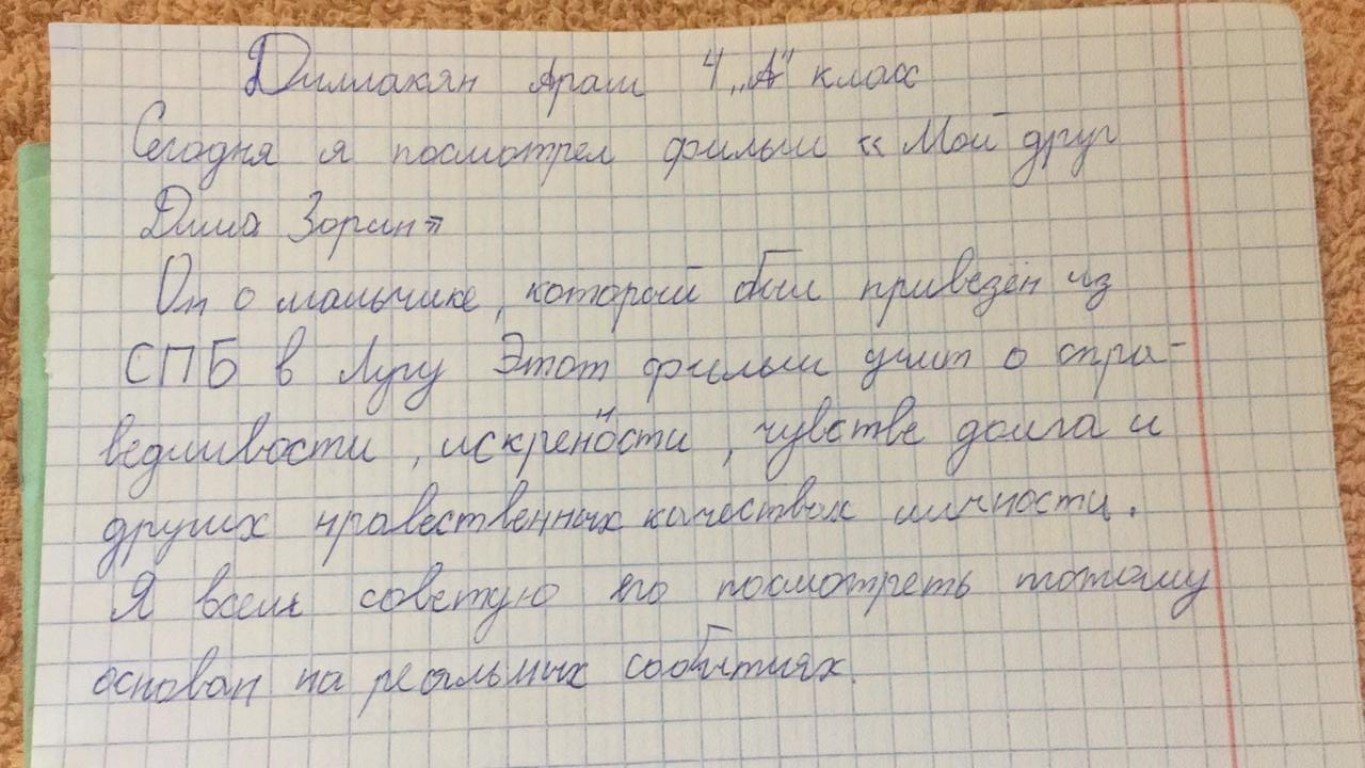 Диллакян Араш 4 „А" класс
Сегодня я посмотрел фильм « Мой друг
Дима Зорин»
Он о мальчике, который был привезён из
СПБ в Лугу Этот фильм учит о спра-
ведливости, искренности, чувстве долга и
других нравественных качествах личности.
Я всем советую его посмотреть потому
основан на реальных событиях.